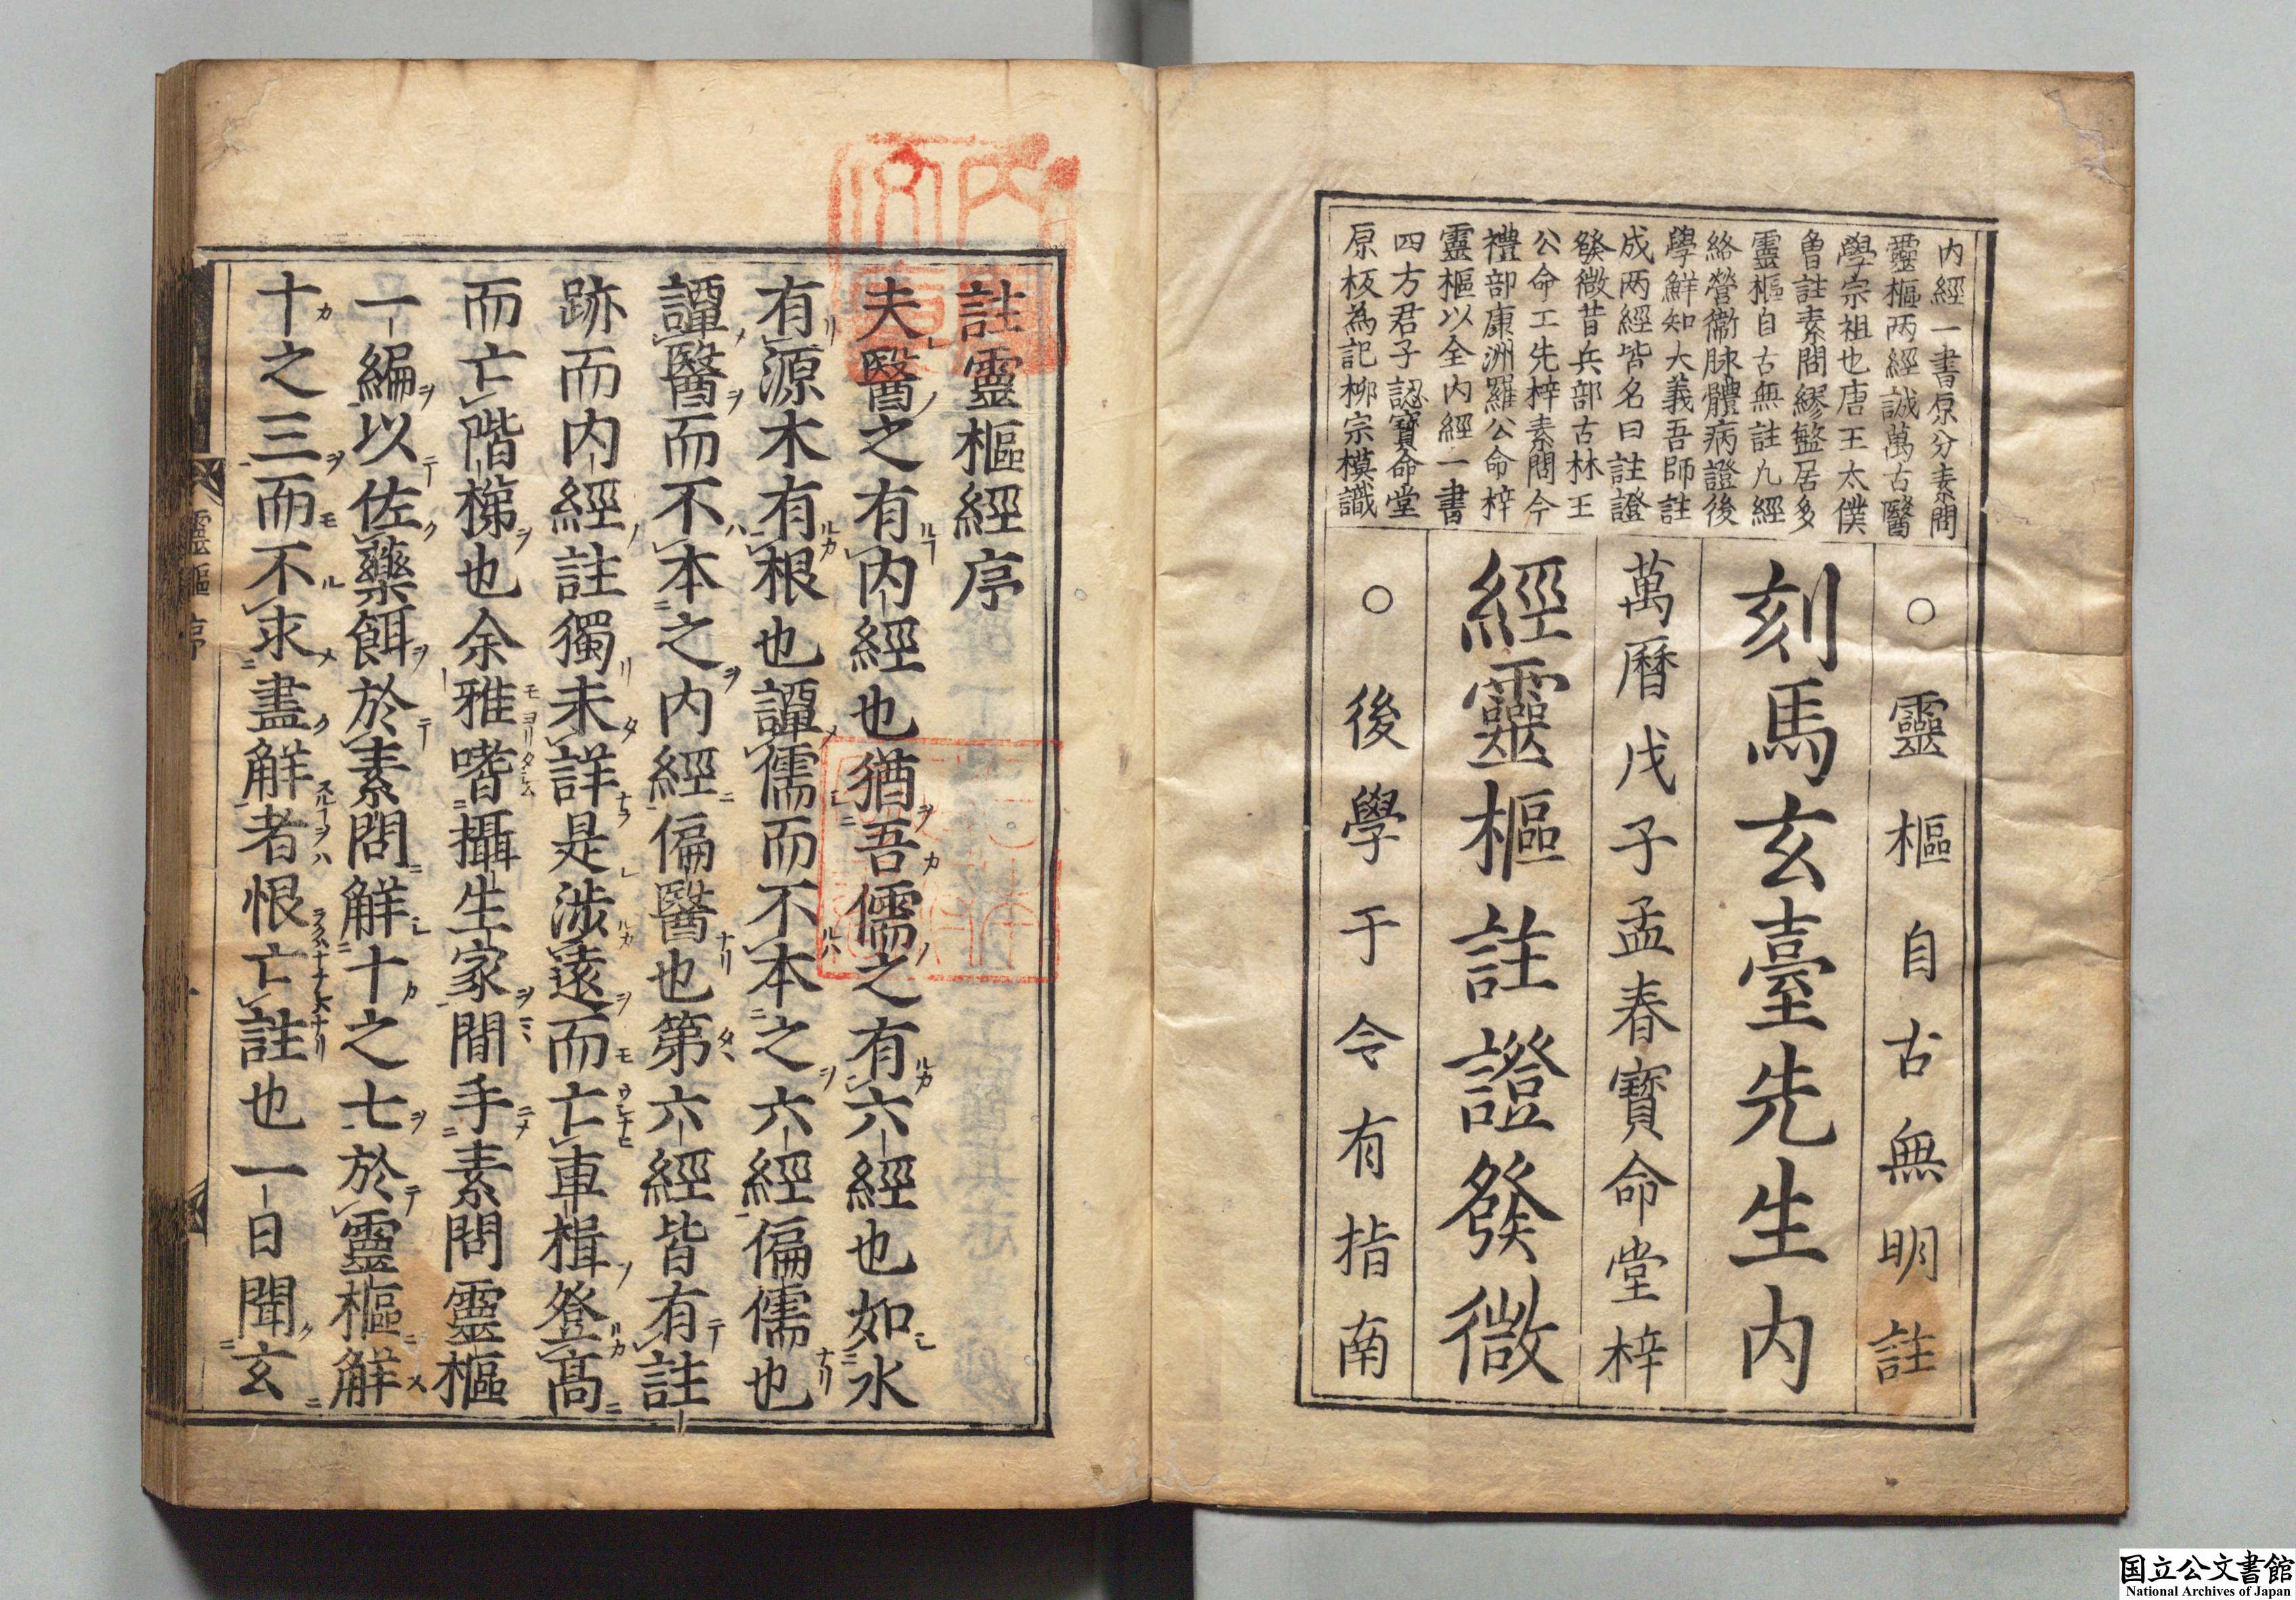 内經一書原分素問
靈樞两經誠萬古醫
學宗祖也唐王太僕
魯註素問繆盭居多
靈樞自古無註九經
絡營衞脉體病證後
學鮮知大義吾師註
成两經皆名曰註證
發微昔兵部古林王
公命工先梓素問今
禮部康洲羅公命梓
靈樞以全内經一書
四方君子認寶命堂
原板為記栁宗模識
○靈樞自古無明註
刻馬玄臺先生内
萬曆戊子孟春寶命堂梓
經靈樞註證發微
○後學于今有指南
註靈樞經序
夫醫之有内經也猶吾儒之有六經也如水
有源木有根也譚儒而不本之六經偏儒也
譚醫而不本之内經偏醫也第六經皆有註
跡而内經註獨未詳是涉遠而亡車楫登髙
而亡階梯也余雅嗜攝生家間手素問靈樞
一編以佐藥餌於素問解十之七於靈樞解
十之三而不求盡解者恨亡註也一日聞玄
靈樞序
国立公文書館
National Archives of Japan